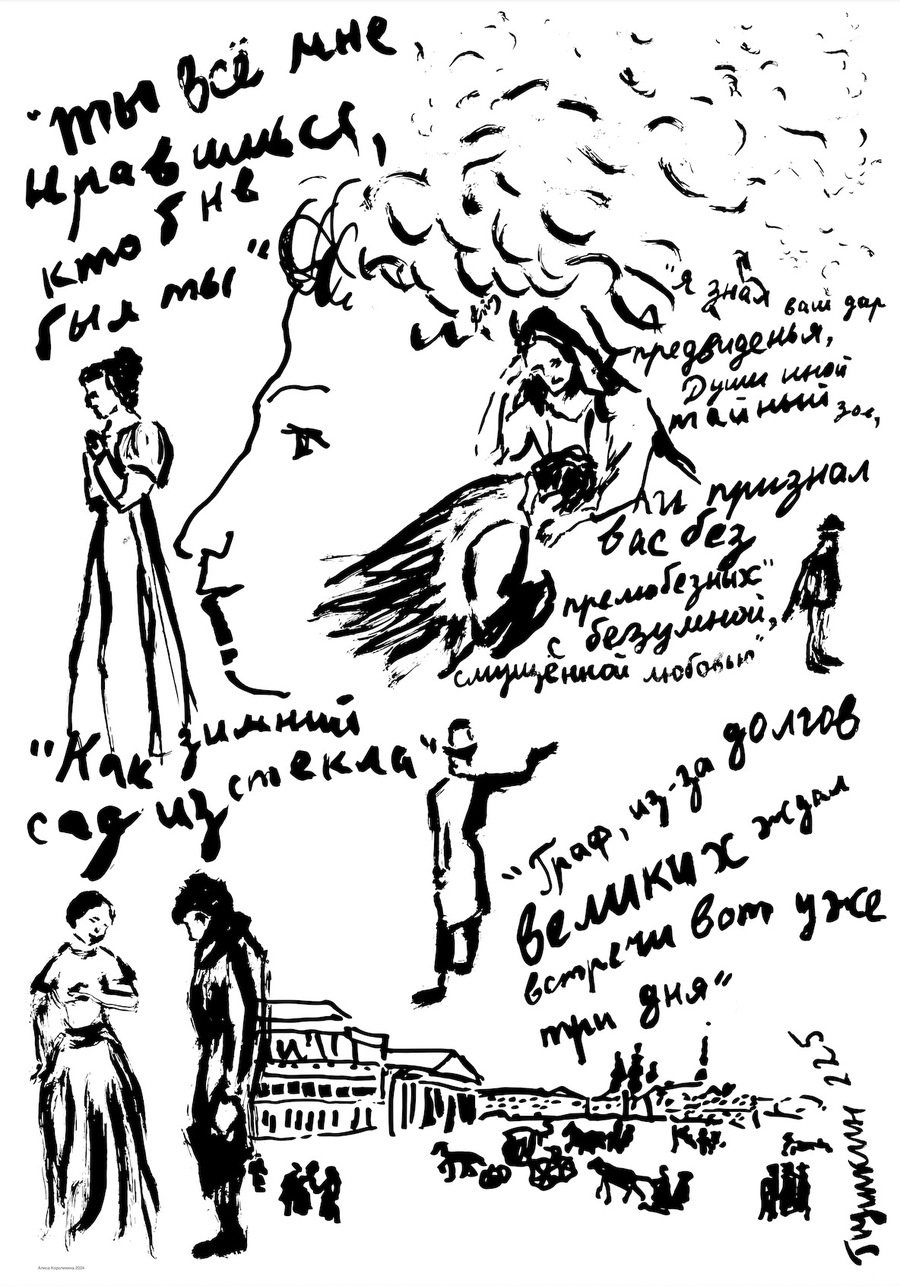 "ты всё мне
нравишься,
кто б не
был ты"
"я знал ваш дар
предвиденья,
Души иной
тайный зов,
и признал
вас без
прелюбезных"
с безумной,
смущённой любовью"
"Как зимний
сад из стекла"
"Граф, из-за долгов
великих ждал
встречи вот уже
три дня"
Пушкин 225
Алиса Королихина 2024